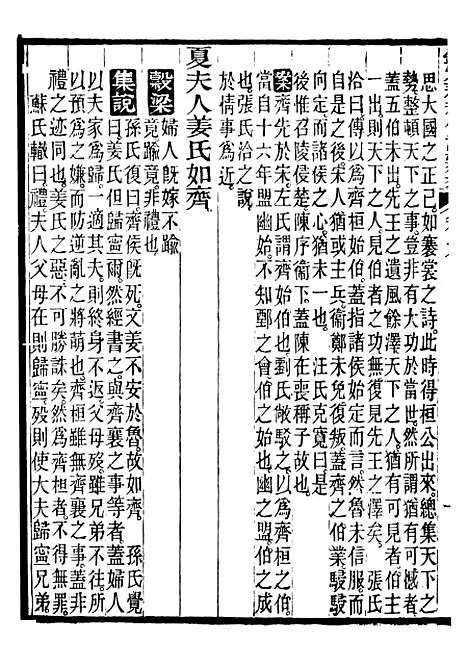 思大國之正己如褰裳之詩此時得桓公出來總集天下之
勢整頓天下之事豈非有大功於當世然所謂猶有可憾者
蓋五伯未出先王之遺風餘澤天下之人猶有可見者伯主
一出則天下之人見伯者之功無復見先王之澤矣　張氏
洽曰傳以為齊桓始伯蓋指諸侯始定而言然魯未信服而
自是之後宋人猶或主兵衞鄭未免復叛蓋齊之伯業駸駸
向定而諸侯之心猶未一也　汪氏克寬曰是
後惟召陵侯楚陳序衞下蓋陳在喪稱子故也
案齊先於宋左氏謂齊始伯也劉氏敞駁之以為齊桓之伯
當自十六年盟幽始不知鄄之會伯之始也幽之盟伯之成
也張氏洽之說
於情事為近
夏夫人姜氏如齊
穀梁婦人既嫁不踰
竟踰竟非禮也
集說孫氏復曰齊侯既死文姜不安於魯故如齊　孫氏覺
曰姜氏但歸寧爾然經書之與齊襄之事等者蓋婦人
以夫家為歸一適其夫則終身不返父母歿雖兄弟不往所
以為之嫌而防逆亂之將萌也姜氏之如齊雖無齊襄之事蓋非
禮之迹同也姜氏之惡不可勝誅矣然為齊桓者不得無罪
蘇氏轍曰禮夫人父母在則歸寧歿則使大夫歸寧兄弟